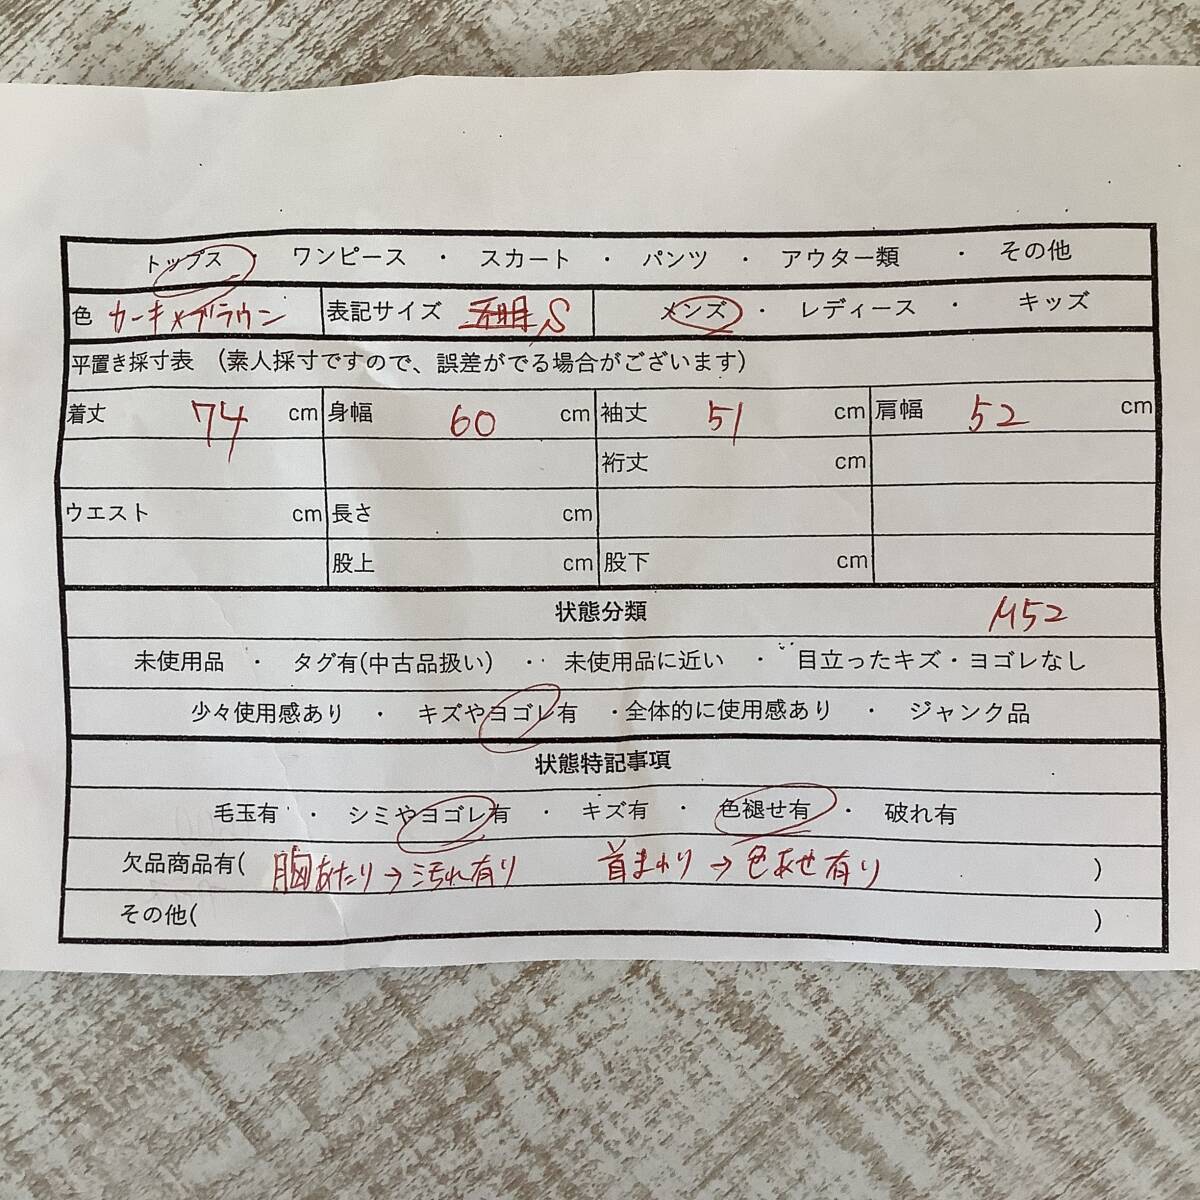 トップス ・ ワンピース ・ スカート ・ パンツ ・ アウター類 ・ その他
色 カーキ×ブラウン 表記サイズ S メンズ ・ レディース ・ キッズ
平置き採寸表 (素人採寸ですので、誤差がでる場合がございます)
着丈 74 cm 身幅 60 cm 袖丈 51 cm 肩幅 52 cm
裄丈 cm
ウエスト cm 長さ cm
股上 cm 股下 cm
状態分類 M52
未使用品 ・ タグ有(中古品扱い) ・ 未使用品に近い ・ 目立ったキズ・ヨゴレなし
少々使用感あり ・ キズやヨゴレ有 ・全体的に使用感あり ・ ジャンク品
状態特記事項
毛玉有 ・ シミやヨゴレ有 ・ キズ有 ・ 色褪せ有 ・ 破れ有
欠品商品有( 胸あたり→汚れ有り 首まわり→色あせ有り )
その他( )